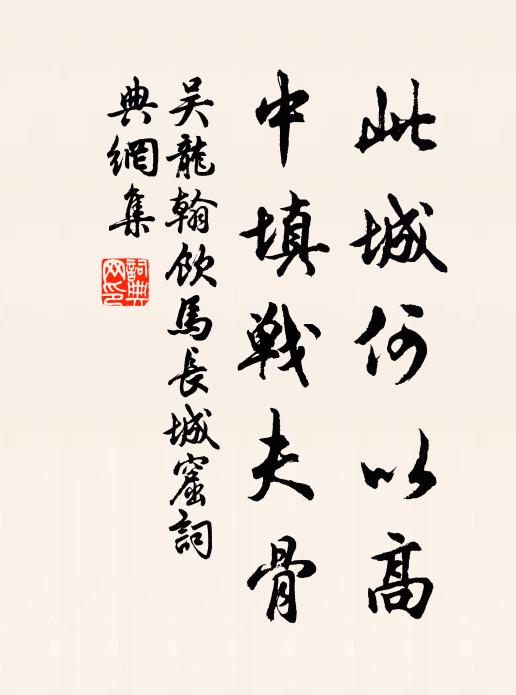 此城何以高
中填戰夫骨
吴龍翰飲馬長城窟詞
典網集
詞典网印